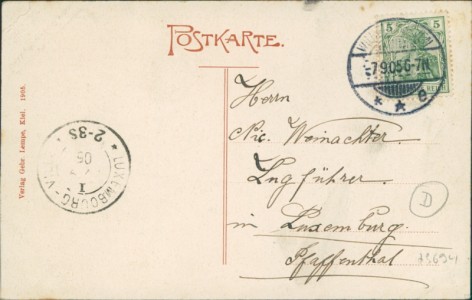 POSTKARTE.
5 5
7.9.05 6-7N
* * e
REICH
Herrn
Nic. Weinachter
Zugführer
in Luxemburg.
Pfaffenthal
D
LUXEMBOURG-V
* 2-3S *
05
I
Verlag Gebr. Lempe, Kiel. 1905.